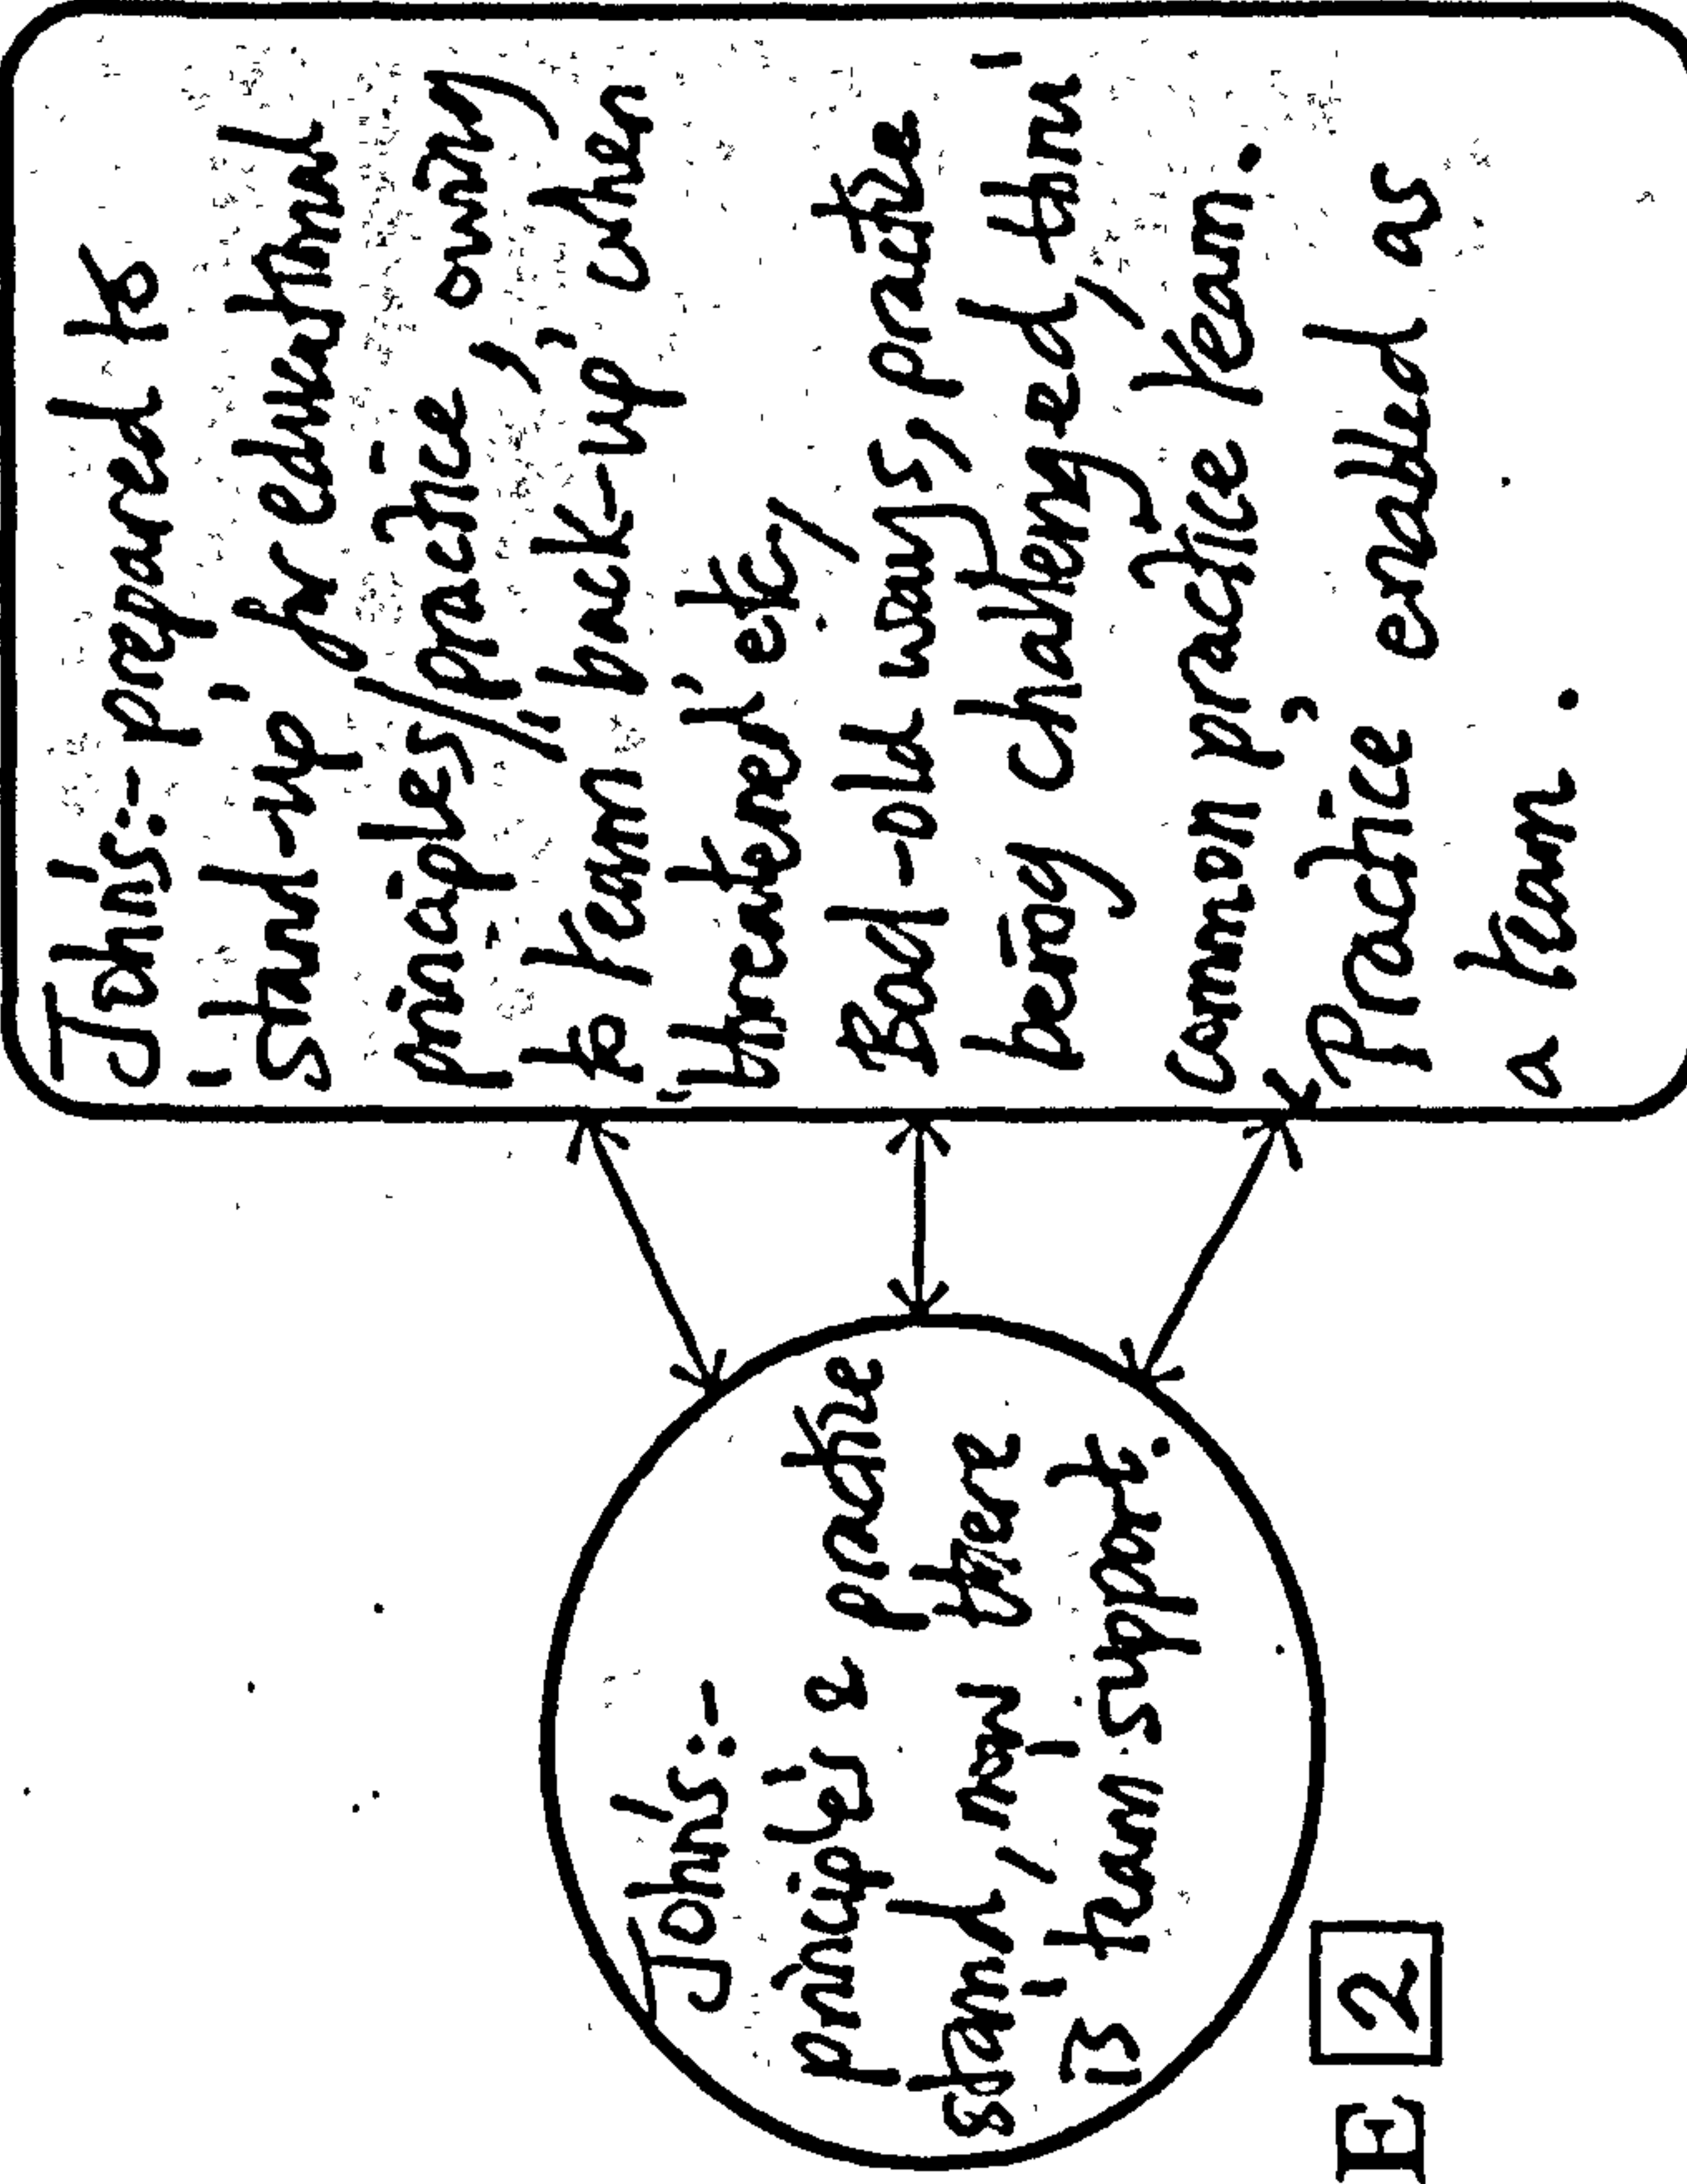 John:-
principle's & practice
stand, now there
is 'team' support.
E 2
John's:- prepared to
'stand-up' for educational
principles/practice, owing
to team 'back-up', when
'threatened' etc/
Bad-old ways, practice
being challenged thru'
common practice team.
Practice enabled as
a team.